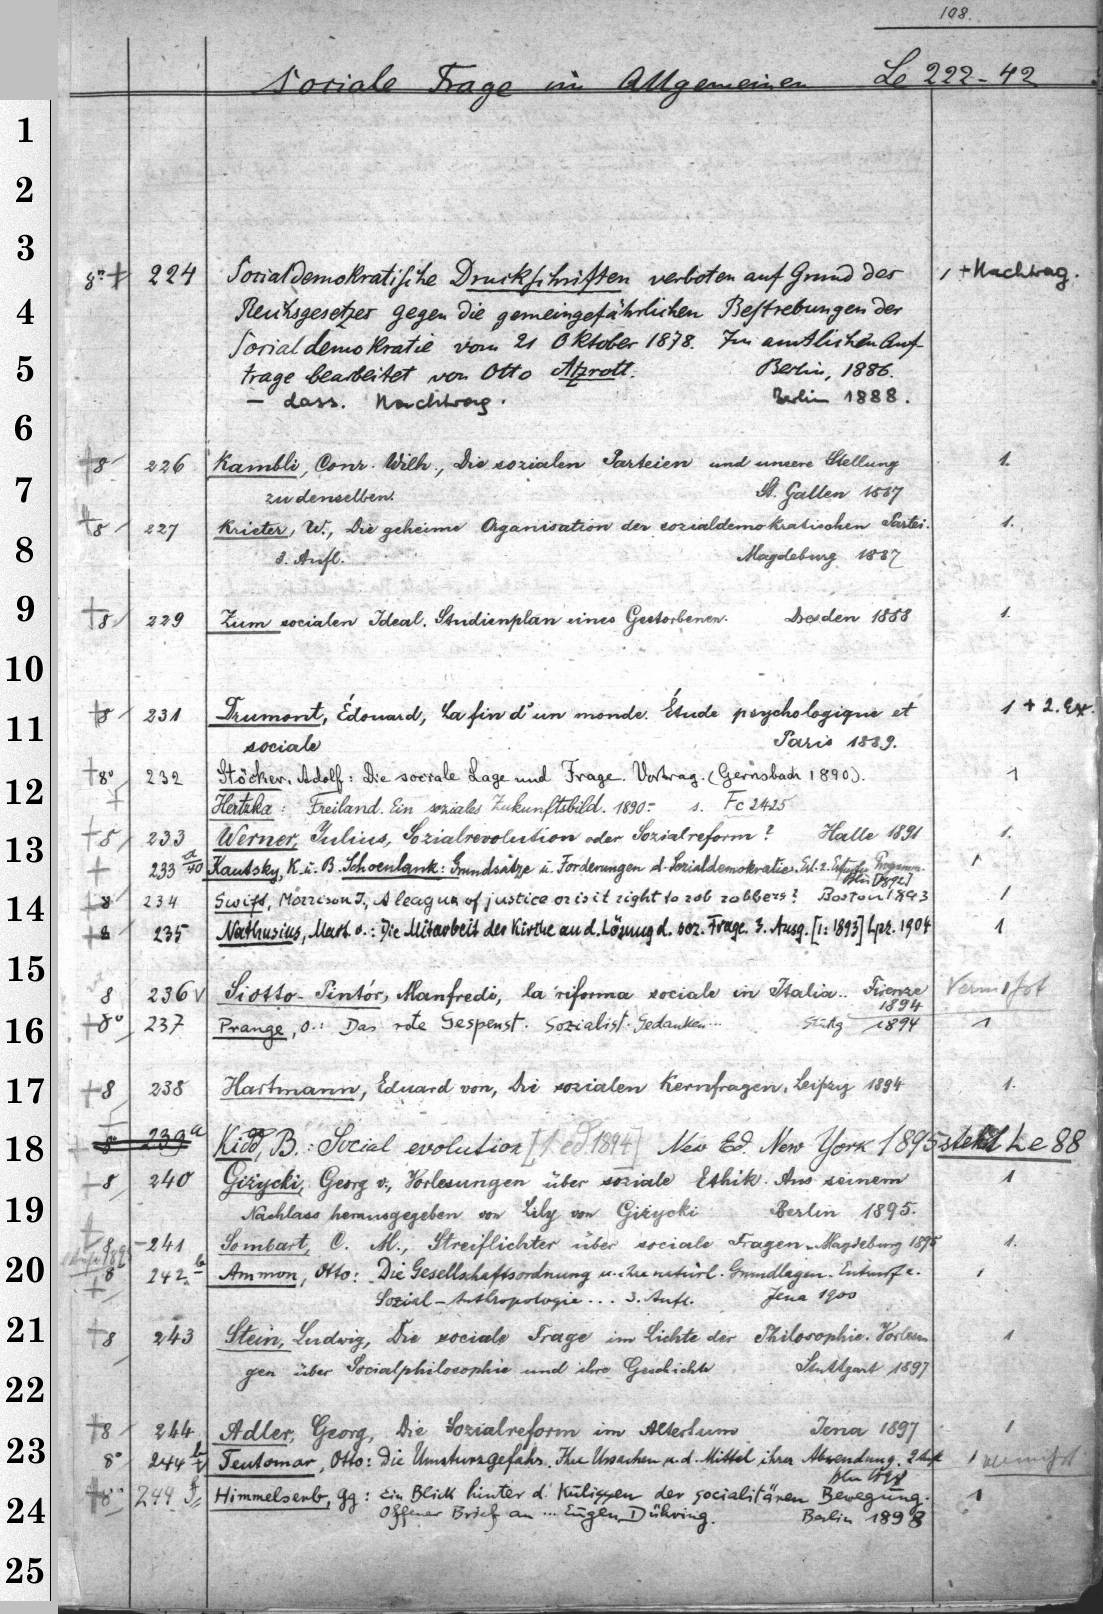 108.
Sociale Frage im Allgemeinen Le 222-42
1
2
3
8° + 224 Socialdemokratische Druckschriften verboten auf Grund des 1 + Nachtrag.
4 Reichsgesetzes gegen die gemeingefährlichen Bestrebungen der
Socialdemokratie vom 21 Oktober 1878. Im amtlichen Auf-
5 trage bearbeitet von Otto Atzrott. Berlin, 1886.
— dass. Nachtrag. Berlin 1888.
6
+8 226 Kambli, Conr. Wilh., Die sozialen Parteien und unsere Stellung 1.
7 zu denselben. St. Gallen 1887
+8 227 Krieter, W., Die geheime Organisation der sozialdemokratischen Partei. 1.
8 3. Aufl. Magdeburg 1887
9 +8 229 Zum socialen Ideal. Studienplan eines Gestorbenen. Dresden 1888 1.
10
+8 231 Drumont, Édouard, La fin d'un monde. Étude psychologique et 1 + 2. Ex.
11 sociale Paris 1889.
+8° 232 Stöcker, Adolf: Die sociale Lage und Frage. Vortrag. (Gernsbach 1890). 1
12 + Hertzka: Freiland. Ein soziales Zukunftsbild. 1890- s. Fc 2425
+8 233 Werner, Julius, Sozialrevolution oder Sozialreform? Halle 1891 1.
13 + 233 a/40 Kautsky, K. u. B. Schoenlank: Grundsätze u. Forderungen d. Sozialdemokratie. Erl. z. Erfurter Programm. 1
Bln [1892]
+8 234 Swift, Morrison J., A league of justice or is it right to rob robbers? Boston 1893 1
14
+8 235 Nathusius, Mart. v.: Die Mitarbeit der Kirche an d. Lösung d. soz. Frage. 3. Ausg. [1: 1893] Lpz. 1904 1
15
8 236 v Siotto-Pintór, Manfredi, la riforma sociale in Italia.. Firenze
1894
16 +8° 237 Prange, O.: Das rote Gespenst. Sozialist. Gedanken... Stuttg 1894 1
17 +8 238 Hartmann, Eduard von, Die sozialen Kernfragen. Leipzig 1894 1.
18 8° 239a Kidd, B.: Social evolution [1. ed. 1894] New Ed. New York 1895 steht Le 88
-8 240 Giżycki, Georg v., Vorlesungen über soziale Ethik. Aus seinem 1
19 Nachlass herausgegeben von Lily von Giżycki Berlin 1895.
241 Sombart, C. M., Streiflichter über sociale Fragen. Magdeburg 1895 1.
20 8 242 b Ammon, Otto: Die Gesellschaftsordnung u. ihre natürl. Grundlagen. Entwurf e. 1
Sozial-Anthropologie... 3. Aufl. Jena 1900
21 +8 243 Stein, Ludwig, Die sociale Frage im Lichte der Philosophie. Vorlesun 1
gen über Socialphilosophie und ihre Geschichte Stuttgart 1897
22
+8 244 Adler, Georg, Die Sozialreform im Altertum Jena 1897 1
23 8° 244 b Teutomar, Otto: Die Umsturzgefahr. Ihre Ursachen u. d. Mittel ihrer Abwendung. 2. Aufl 1
+8° 244 Himmelserb, Gg: Ein Blick hinter d. Kulissen der socialitären Bewegung. 1
24 Offener Brief an ... Eugen Dühring. Berlin 1898
25